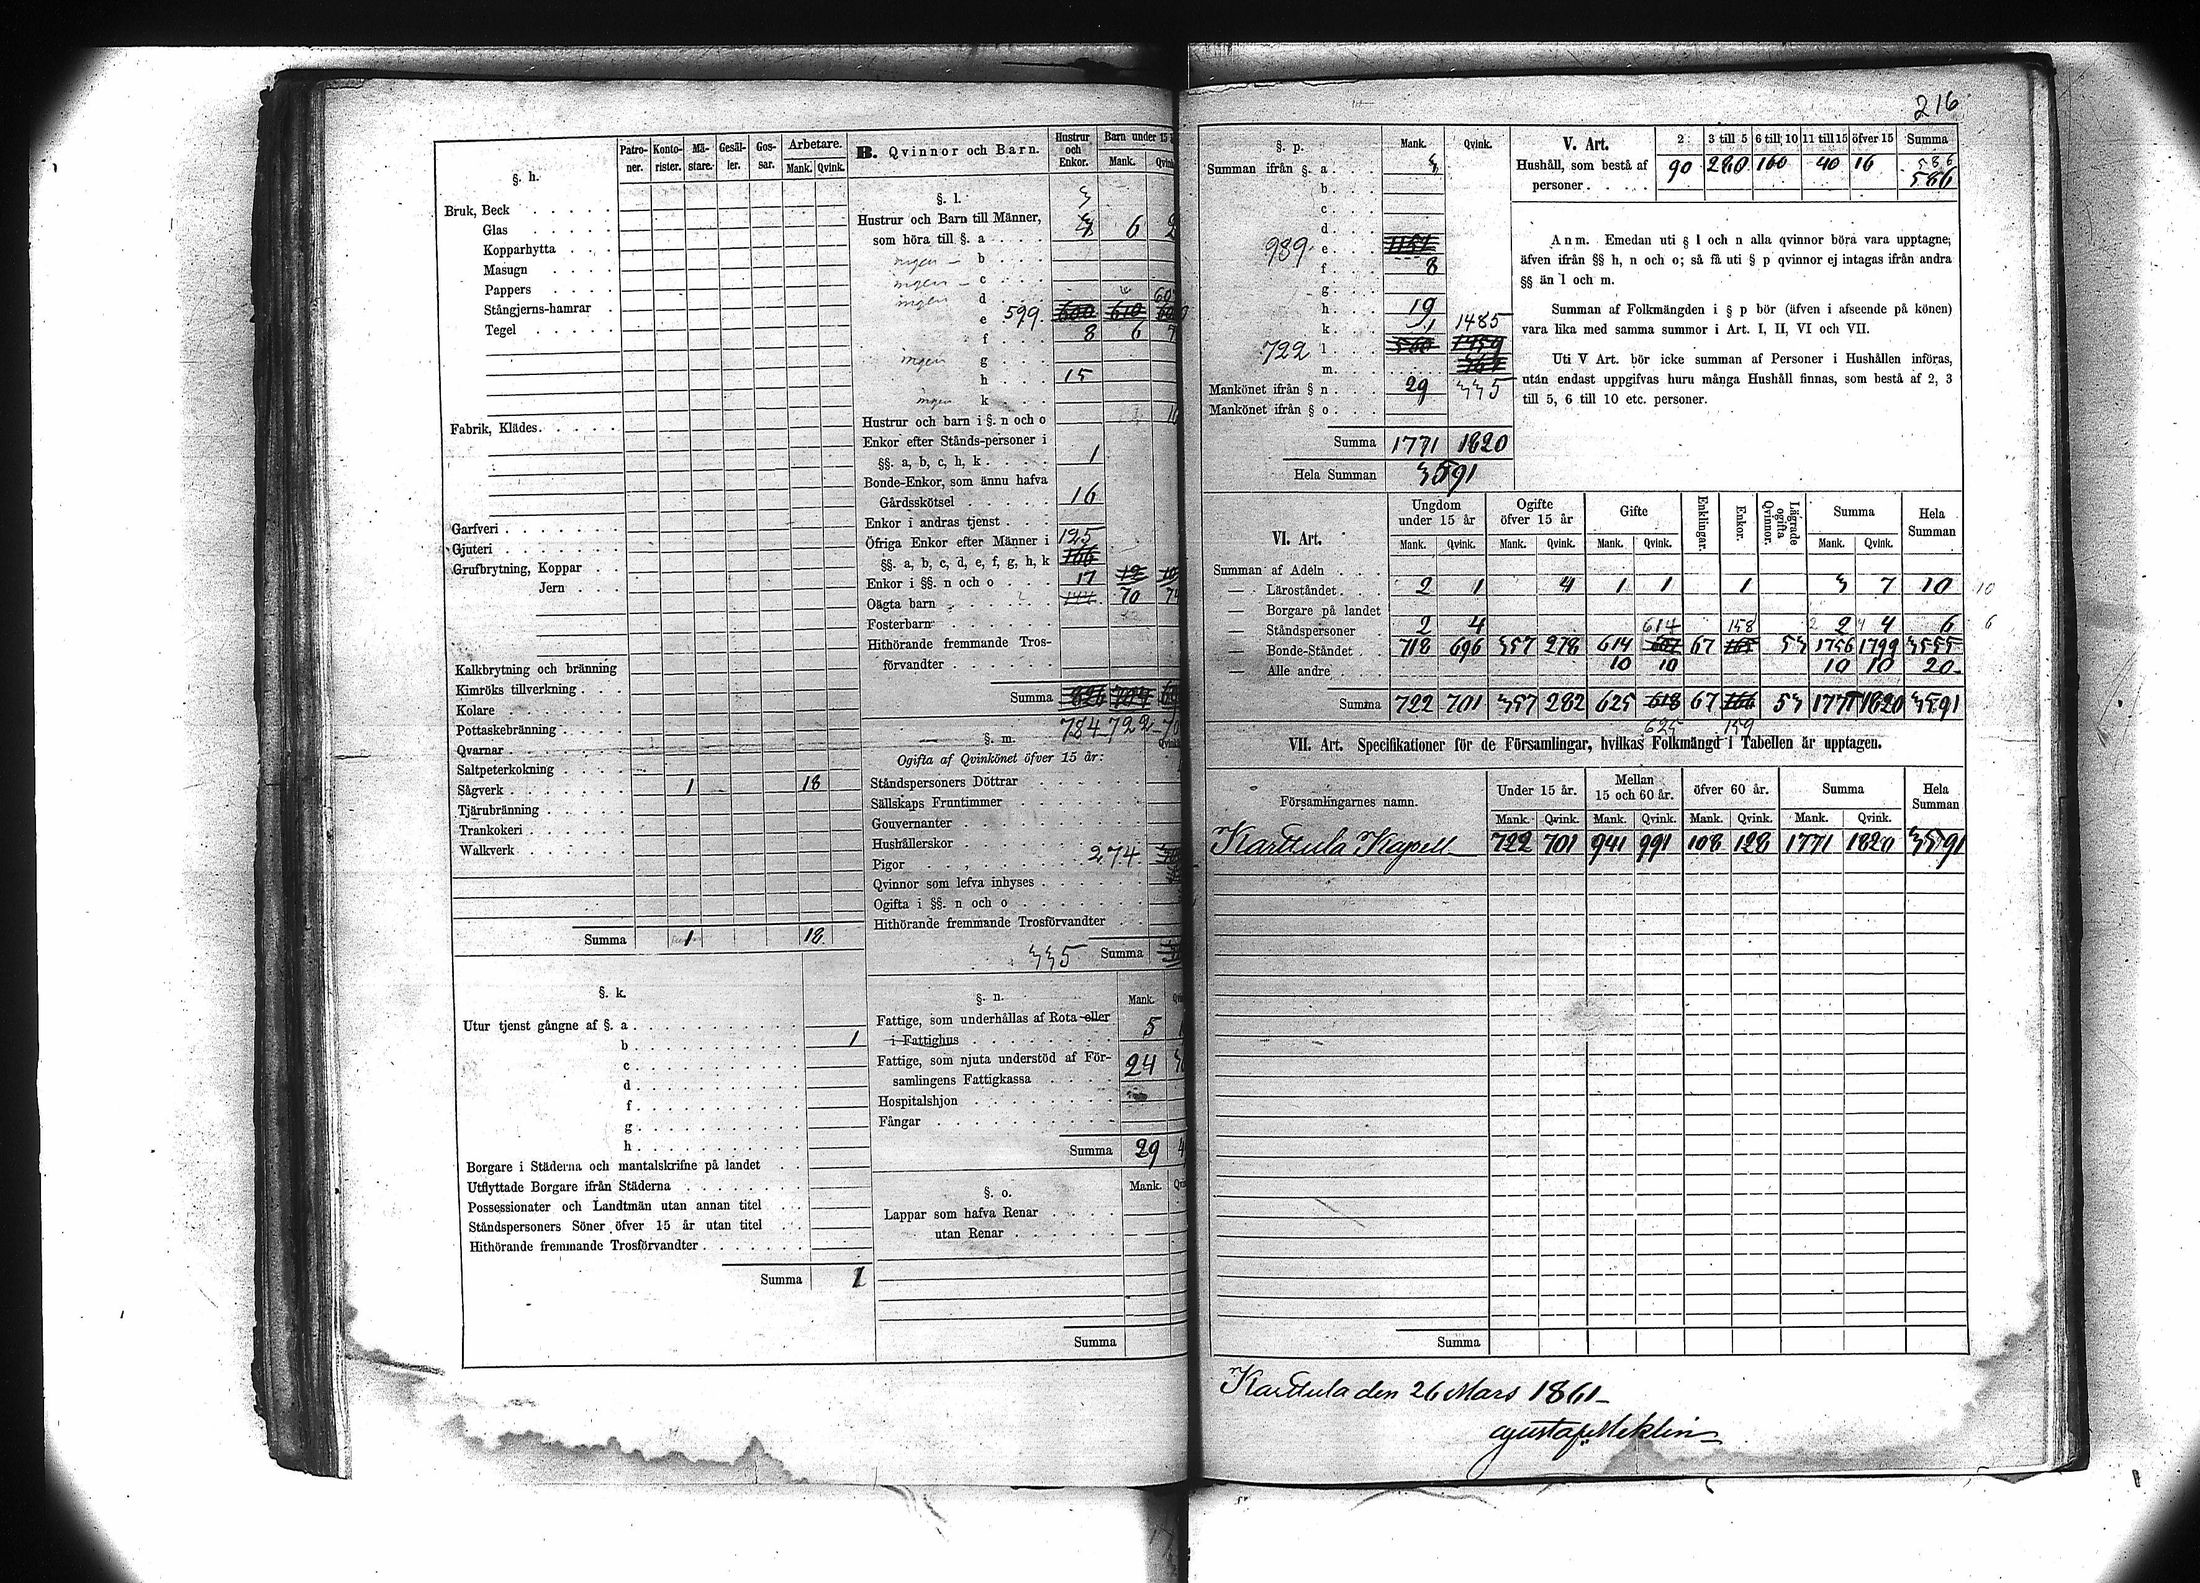 216
§. h.
Patroner. Kontorister. Mästare. Gesäller. Gossar. Arbetare. Mank. Qvink.
Bruk, Beck
Glas
Kopparhytta
Masugn
Pappers
Stångjerns-hamrar
Tegel
Fabrik, Klädes
Garfveri
Gjuteri
Grufbrytning, Koppar
Jern
Kalkbrytning och bränning
Kimröks tillverkning
Kolare
Pottaskebränning
Qvarnar
Saltpeterkokning
Sågverk 1 18
Tjärubränning
Trankokeri
Walkverk
Summa 1 18
§. k.
Utur tjenst gångne af §. a
b 1
c
d
f
g
h
Borgare i Städerna och mantalskrifne på landet
Utflyttade Borgare ifrån Städerna
Possessionater och Landtmän utan annan titel
Ståndspersoners Söner öfver 15 år utan titel
Hithörande fremmande Trosförvandter
Summa 1
B. Qvinnor och Barn. Hustrur och Enkor. Barn under 15
Mank.
§. l.
3
Hustrur och Barn till Männer,
som höra till §. a 6 2
ingen - b
ingen - c
ingen d
e 599 600 610
f 8 6 7
ingen g
h 15
ingen k
Hustrur och barn i §. n och o
Enkor efter Stånds-personer i
§§. a, b, c, h, k 1
Bonde-Enkor, som ännu hafva
Gårdsskötsel 16
Enkor i andras tjenst
Öfriga Enkor efter Männer i 125
§§. a, b, c, d, e, f, g, h, k 166
Enkor i §§. n och o 17
Oägta barn 70 74
Fosterbarn
Hithörande fremmande Trosförvandter
Summa 826 704
784 722
§. m.
Ogifta af Qvinkönet öfver 15 år:
Ståndspersoners Döttrar
Sällskaps Fruntimmer
Gouvernanter
Hushållerskor
Pigor 274
Qvinnor som lefva inhyses
Ogifta i §§. n och o
Hithörande fremmande Trosförvandter
335 Summa
§. n. Mank.
Fattige, som underhållas af Rota eller
i Fattighus 5
Fattige, som njuta understöd af Församlingens Fattigkassa 24
Hospitalshjon
Fångar
Summa 29
§. o. Mank.
Lappar som hafva Renar
utan Renar
Summa
§. p. Mank. Qvink.
Summan ifrån §. a 3
b
c
d
989 e 1157
f 8
g
h 19
k 1 1485
722 l 1459
m
Mankönet ifrån § n 29 335
Mankönet ifrån § o
Summa 1771 1820
Hela Summan 3591
V. Art. 2 3 till 5 6 till 10 11 till 15 öfver 15 Summa
Hushåll, som bestå af
personer 90 280 160 40 16 586
586
Anm. Emedan uti § l och n alla qvinnor böra vara upptagne;
äfven ifrån §§ h, n och o; så få uti § p qvinnor ej intagas ifrån andra
§§ än l och m.
Summan af Folkmängden i § p bör (äfven i afseende på könen)
vara lika med samma summor i Art. I, II, VI och VII.
Uti V Art. bör icke summan af Personer i Hushållen införas,
utan endast uppgifvas huru många Hushåll finnas, som bestå af 2, 3
till 5, 6 till 10 etc. personer.
VI. Art. Ungdom under 15 år Ogifte öfver 15 år Gifte Enklingar. Enkor. Lägrade ogifta Qvinnor. Summa Hela Summan
Mank. Qvink. Mank. Qvink. Mank. Qvink. Mank. Qvink.
Summan af Adeln
— Läroståndet 2 1 4 1 1 1 3 7 10 10
— Borgare på landet
— Ståndspersoner 2 4 2 4 6 6
614 158
— Bonde-Ståndet 718 696 357 278 614 607 67 165 53 1756 1799 3555
— Alle andre 10 10 10 10 20
Summa 722 701 357 282 625 618 67 166 53 1771 1820 3591
625 159
VII. Art. Specifikationer för de Församlingar, hvilkas Folkmängd i Tabellen är upptagen.
Församlingarnes namn. Under 15 år. Mellan 15 och 60 år. öfver 60 år. Summa Hela Summan
Mank. Qvink. Mank. Qvink. Mank. Qvink. Mank. Qvink.
Karttula Kapell 722 701 941 991 108 128 1771 1820 3591
Summa
Karttula den 26 Mars 1861
Gustaf Meklin